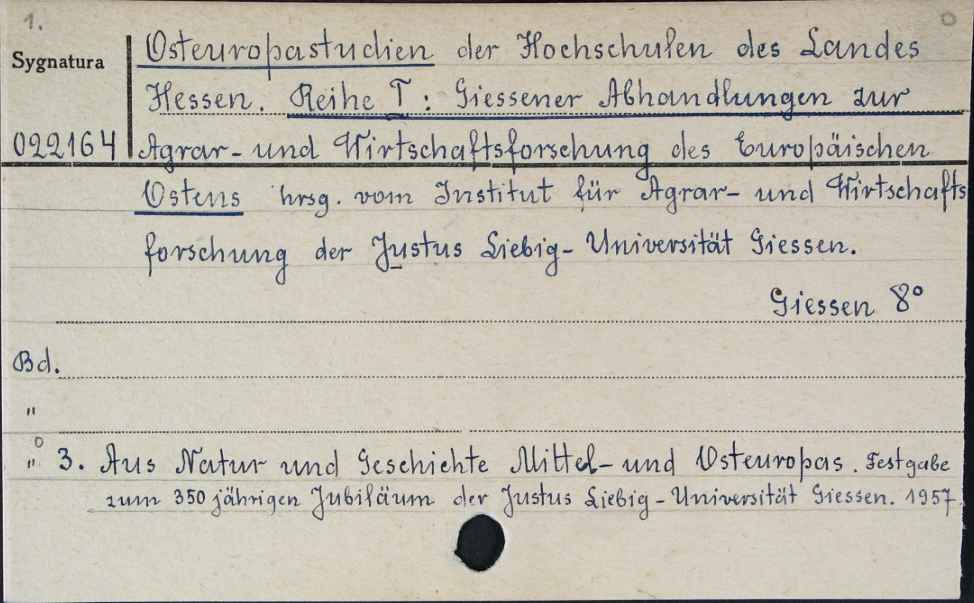 1.
Sygnatura
022164
Osteuropastudien der Hochschulen des Landes
Hessen. Reihe I: Giessener Abhandlungen zur
Agrar- und Wirtschaftsforschung des Europäischen
Ostens hrsg. vom Institut für Agrar- und Wirtschafts
forschung der Justus Liebig-Universität Giessen.
Giessen 8°
Bd.
"
" 3. Aus Natur und Geschichte Mittel- und Osteuropas. Festgabe
zum 350 jährigen Jubiläum der Justus Liebig-Universität Giessen. 1957.